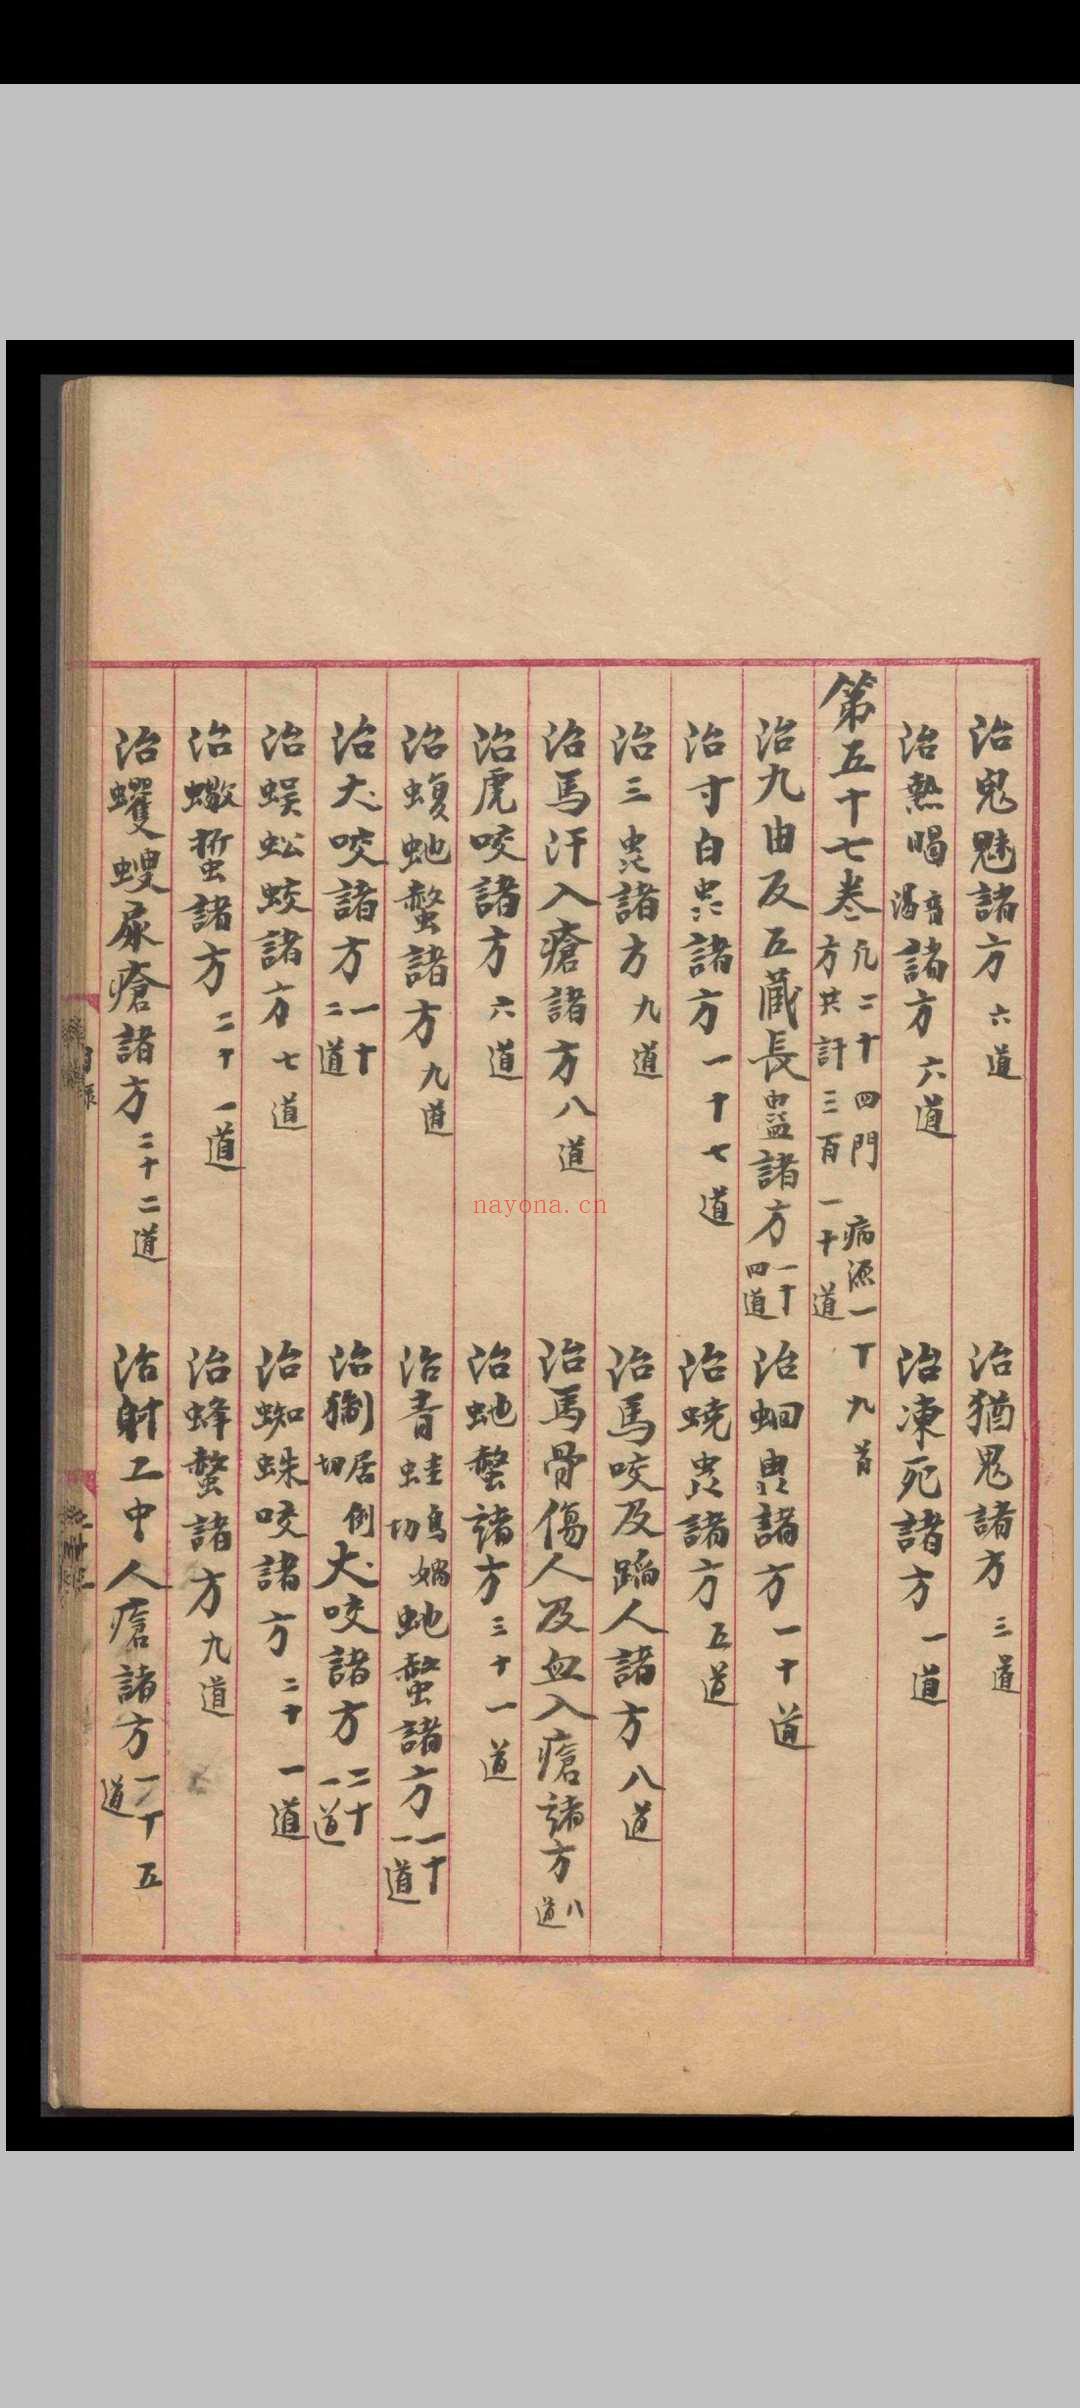 治鬼魅諸方六道 治猶鬼諸方三道
治熱暍音渴諸方六道 治凍死諸方一道
第五十七卷凡二十四門 病源一十九首 方共計三百一十道
治九虫及五藏長虫諸方一十四道 治蛔虫諸方一十道
治寸白虫諸方一十七道 治蟯虫諸方五道
治三虫諸方九道 治馬咬及蹋人諸方八道
治馬汗入瘡諸方八道 治馬骨傷人及血入瘡諸方八道
治虎咬諸方六道 治虵螫諸方三十一道
治蝮虵螫諸方九道 治青蛙烏媧切虵螫諸方一十一道
治犬咬諸方一十二道 治猘居例切犬咬諸方二十一道
治蜈蚣蛟諸方七道 治蜘蛛咬諸方二十一道
治蠍蜇諸方二十一道 治蜂螫諸方九道
治蠼螋尿瘡諸方二十二道 治射工中人瘡諸方一十五道
目錄
nayona.cn